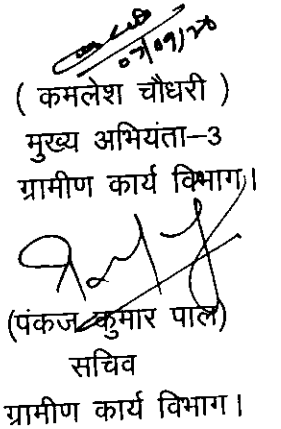 07/09/20
( कमलेश चौधरी )
मुख्य अभियंता–3
ग्रामीण कार्य विभाग।
(पंकज कुमार पाल)
सचिव
ग्रामीण कार्य विभाग।